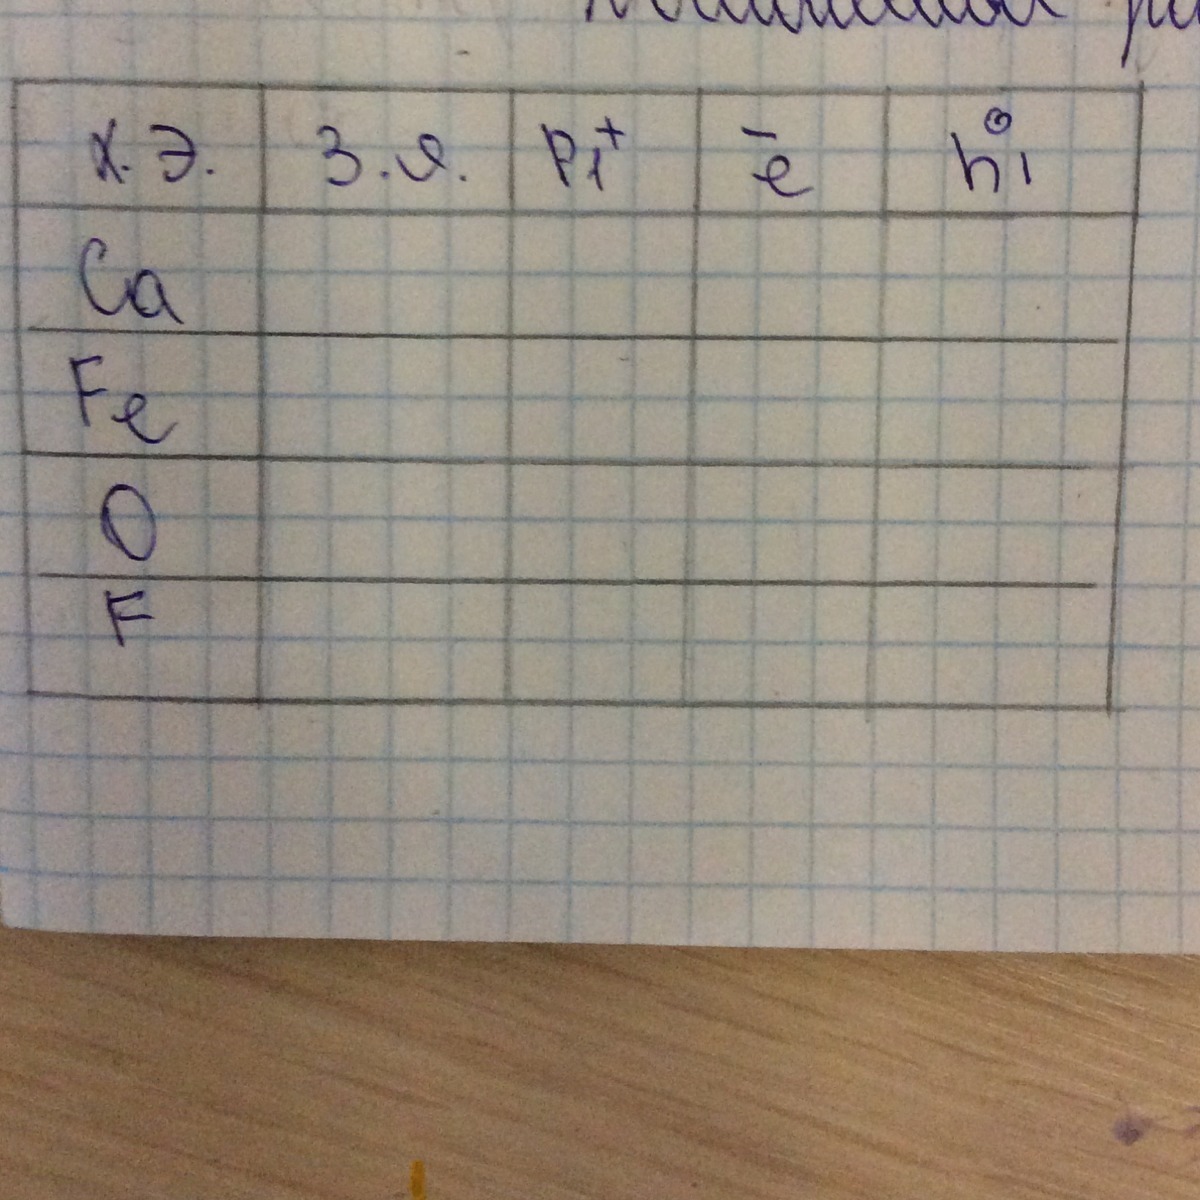 х.э. З.я. p₁⁺ e̅ n₁⁰
Ca
Fe
O
F